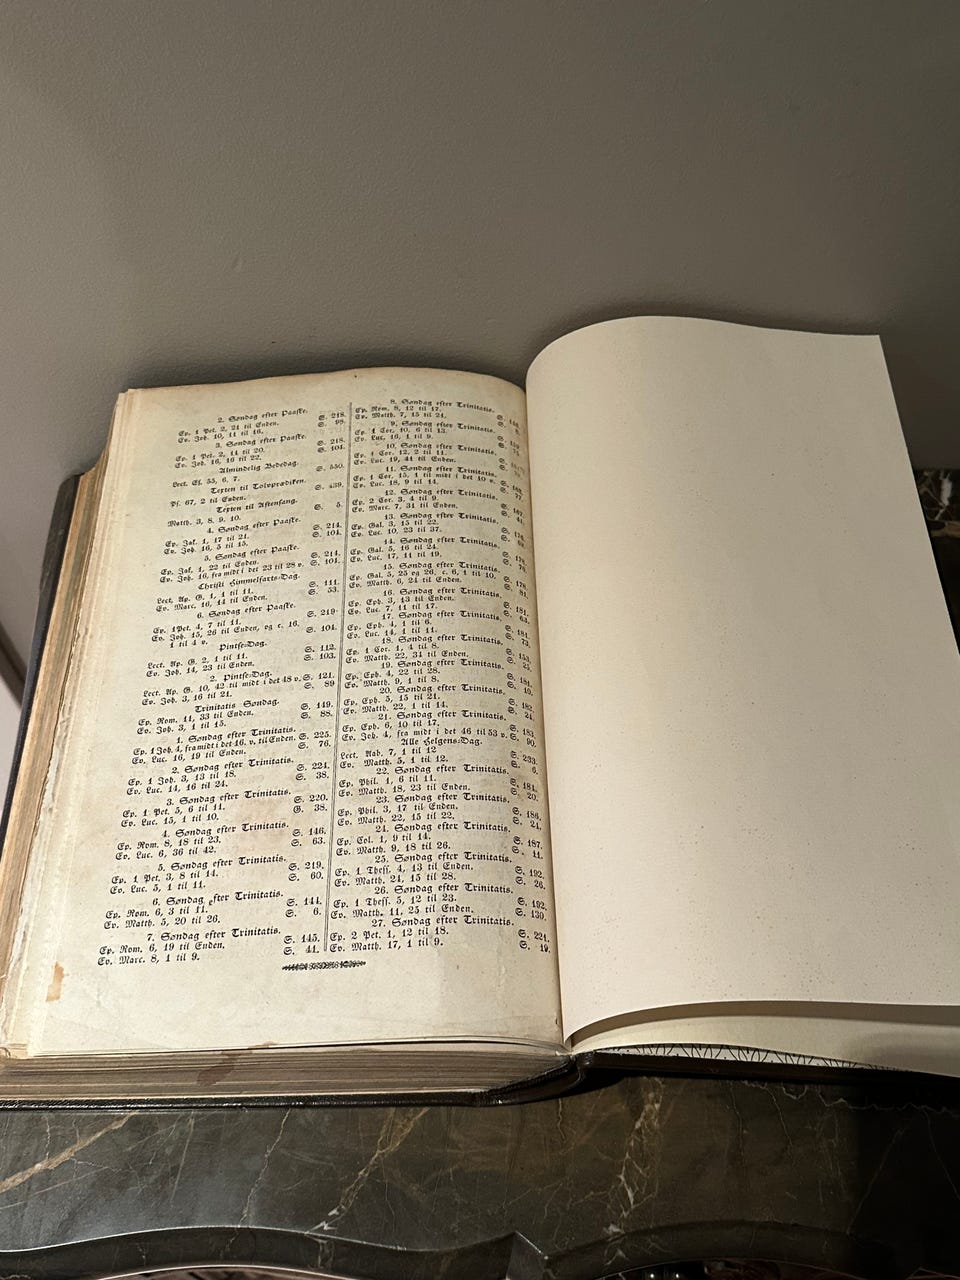 2. Søndag efter Paaske.
Ep. 1 Pet. 2, 21 til Enden. S. 218.
Ev. Joh. 10, 11 til 16. S. 98.
3. Søndag efter Paaske.
Ep. 1 Pet. 2, 11 til 20. S. 218.
Ev. Joh. 16, 16 til 22. S. 104.
Almindelig Bededag.
Lect. Es. 55, 6. 7. S. 550.
Texten til Tolvprædiken.
Ps. 67, 2 til Enden. S. 439.
Texten til Aftensang.
Matth. 3, 8. 9. 10. S. 5.
4. Søndag efter Paaske.
Ep. Jak. 1, 17 til 21. S. 214.
Ev. Joh. 16, 5 til 15. S. 104.
5. Søndag efter Paaske.
Ep. Jak. 1, 22 til Enden. S. 214.
Ev. Joh. 16, fra midt i det 23 til 28 v. S. 104.
Christi Himmelfarts-Dag.
Lect. Ap. G. 1, 1 til 11. S. 111.
Ev. Marc. 16, 14 til Enden. S. 53.
6. Søndag efter Paaske.
Ep. 1 Pet. 4, 7 til 11. S. 219.
Ev. Joh. 15, 26 til Enden, og c. 16,
1 til 4 v. S. 104.
Pintse-Dag.
Lect. Ap. G. 2, 1 til 11. S. 112.
Ev. Joh. 14, 23 til Enden. S. 103.
2. Pintse-Dag.
Lect. Ap. G. 10, 42 til midt i det 48 v. S. 121.
Ev. Joh. 3, 16 til 21. S. 89
Trinitatis Søndag.
Ep. Rom. 11, 33 til Enden. S. 149.
Ev. Joh. 3, 1 til 15. S. 88.
1. Søndag efter Trinitatis.
Ep. 1 Joh. 4, fra midt i det 16. v. til Enden. S. 225.
Ev. Luc. 16, 19 til Enden. S. 76.
2. Søndag efter Trinitatis.
Ep. 1 Joh. 3, 13 til 18. S. 224.
Ev. Luc. 14, 16 til 24. S. 38.
3. Søndag efter Trinitatis.
Ep. 1 Pet. 5, 6 til 11. S. 220.
Ev. Luc. 15, 1 til 10. G. 38.
4. Søndag efter Trinitatis.
Ep. Rom. 8, 18 til 23. S. 146.
Ev. Luc. 6, 36 til 42. S. 63.
5. Søndag efter Trinitatis.
Ep. 1 Pet. 3, 8 til 14. S. 219.
Ev. Luc. 5, 1 til 11. S. 60.
6. Søndag efter Trinitatis.
Ep. Rom. 6, 3 til 11. S. 144.
Ev. Matth. 5, 20 til 26. S. 6.
7. Søndag efter Trinitatis.
Ep. Rom. 6, 19 til Enden. S. 145.
Ev. Marc. 8, 1 til 9. S. 41.
8. Søndag efter Trinitatis.
Ep. Rom. 8, 12 til 17.
Ev. Matth. 7, 15 til 21.
9. Søndag efter Trinitatis.
Ep. 1 Cor. 10, 6 til 13.
Ev. Luc. 16, 1 til 9.
10. Søndag efter Trinitatis.
Ep. 1 Cor. 12, 2 til 11.
Ev. Luc. 19, 41 til Enden.
11. Søndag efter Trinitatis.
Ep. 1 Cor. 15, 1 til midt i det 10 v.
Ev. Luc. 18, 9 til 14. S. 77.
12. Søndag efter Trinitatis.
Ep. 2 Cor. 3, 4 til 9. S. 167.
Ev. Marc. 7, 31 til Enden. S. 41.
13. Søndag efter Trinitatis.
Ep. Gal. 3, 15 til 22. S.
Ev. Luc. 10, 23 til 37. S.
14. Søndag efter Trinitatis.
Ep. Gal. 5, 16 til 24. S.
Ev. Luc. 17, 11 til 19. S. 76.
15. Søndag efter Trinitatis.
Ep. Gal. 5, 25 og 26, c. 6, 1 til 10. S. 178.
Ev. Matth. 6, 24 til Enden. S.
16. Søndag efter Trinitatis.
Ep. Eph. 3, 13 til Enden. S. 181.
Ev. Luc. 7, 11 til 17. S. 63.
17. Søndag efter Trinitatis.
Ep. Eph. 4, 1 til 6. S. 181.
Ev. Luc. 14, 1 til 11. S. 73.
18. Søndag efter Trinitatis.
Ep. 1 Cor. 1, 4 til 8. S. 153.
Ev. Matth. 22, 34 til Enden. S. 25.
19. Søndag efter Trinitatis.
Ep. Eph. 4, 22 til 28. S. 181.
Ev. Matth. 9, 1 til 8. S. 10.
20. Søndag efter Trinitatis.
Ep. Eph. 5, 15 til 21. S. 182.
Ev. Matth. 22, 1 til 14. S. 24.
21. Søndag efter Trinitatis.
Ep. Eph. 6, 10 til 17. S. 183.
Ev. Joh. 4, fra midt i det 46 til 53 v. S. 90.
Alle Helgens-Dag.
Lect. Aab. 7, 1 til 12 S. 233.
Ev. Matth. 5, 1 til 12. S. 6.
22. Søndag efter Trinitatis.
Ep. Phil. 1, 6 til 11. S. 184.
Ev. Matth. 18, 23 til Enden. S. 20.
23. Søndag efter Trinitatis.
Ep. Phil. 3, 17 til Enden. S. 186.
Ev. Matth. 22, 15 til 22. S. 24.
24. Søndag efter Trinitatis.
Ep. Col. 1, 9 til 14. S. 187.
Ev. Matth. 9, 18 til 26. S. 11.
25. Søndag efter Trinitatis.
Ep. 1 Thess. 4, 13 til Enden. S. 192.
Ev. Matth. 24, 15 til 28. S. 26.
26. Søndag efter Trinitatis.
Ep. 1 Thess. 5, 12 til 23. S. 192.
Ev. Matth. 11, 25 til Enden. S. 130.
27. Søndag efter Trinitatis.
Ep. 2 Pet. 1, 12 til 18. S. 221.
Ev. Matth. 17, 1 til 9. S. 19.